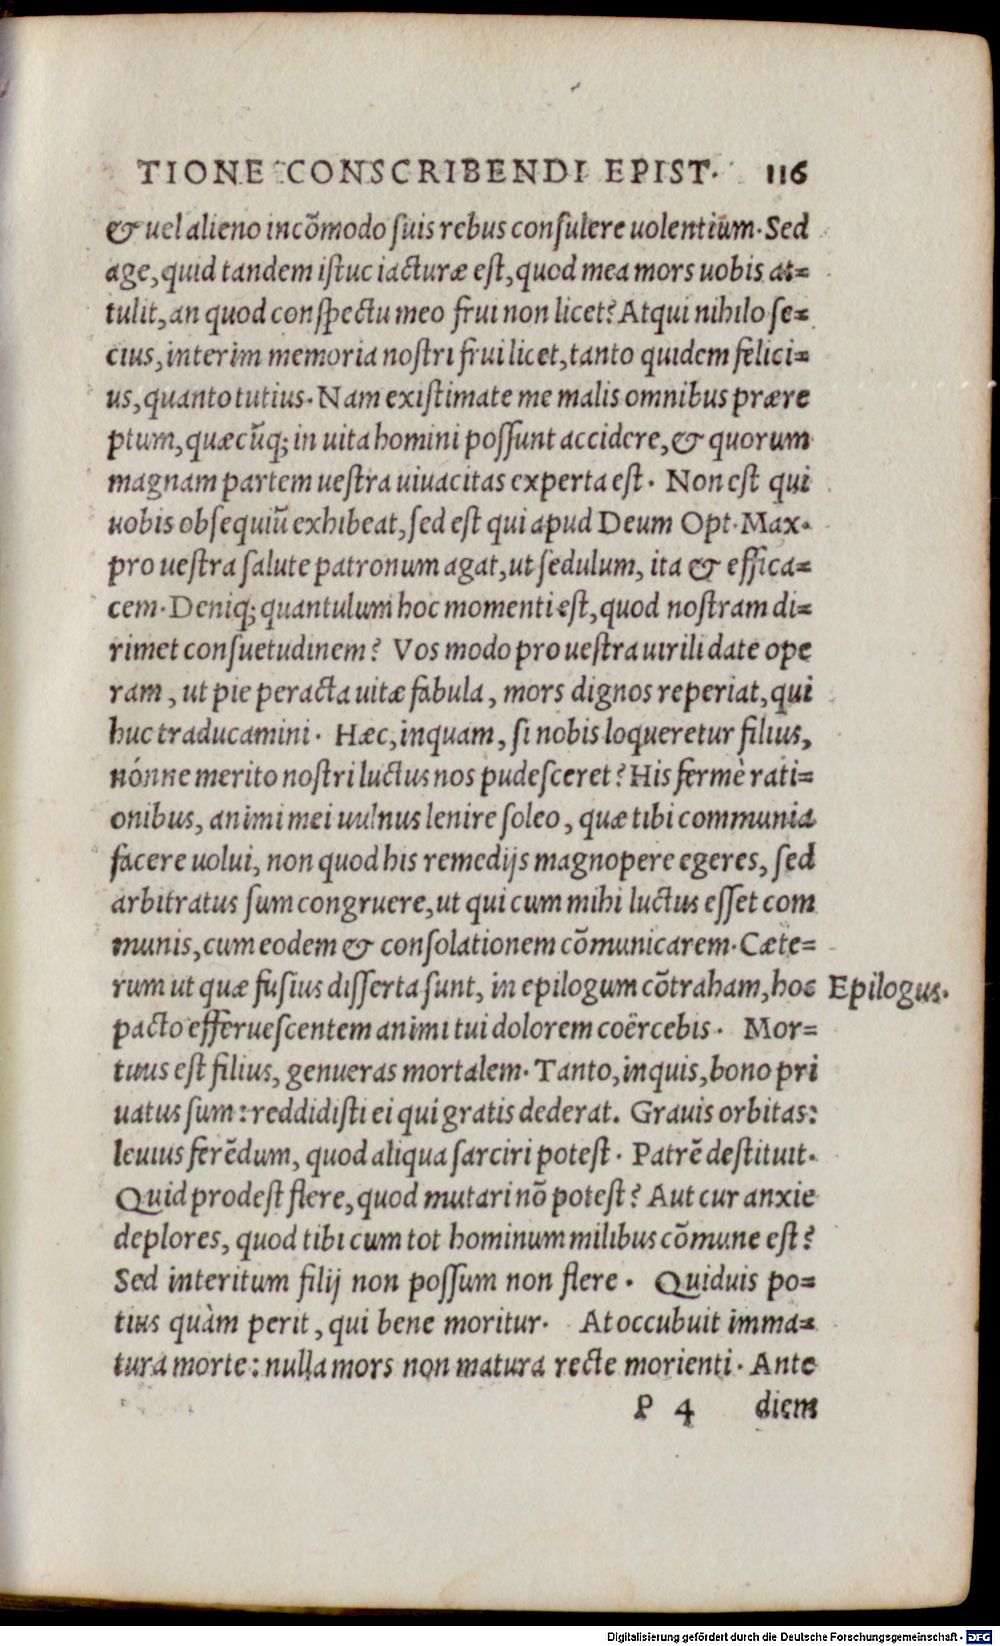 TIONE CONSCRIBENDI EPIST. 116
& uel alieno incõmodo suis rebus consulere uolentium. Sed
age, quid tandem istuc iacturæ est, quod mea mors uobis at=
tulit, an quod conspectu meo frui non licet? Atqui nihilo se=
cius, interim memoria nostri frui licet, tanto quidem felici=
us, quanto tutius. Nam existimate me malis omnibus prære
ptum, quæcũq; in uita homini possunt accidere, & quorum
magnam partem uestra uiuacitas experta est. Non est qui
uobis obsequiũ exhibeat, sed est qui apud Deum Opt. Max.
pro uestra salute patronum agat, ut sedulum, ita & effica=
cem. Deniq; quantulum hoc momenti est, quod nostram di=
rimet consuetudinem? Vos modo pro uestra uirili date ope
ram, ut pie peracta uitæ fabula, mors dignos reperiat, qui
huc traducamini. Hæc, inquam, si nobis loqueretur filius,
nónne merito nostri luctus nos pudesceret? His fermè rati=
onibus, animi mei uulnus lenire soleo, quæ tibi communia
facere uolui, non quod his remedijs magnopere egeres, sed
arbitratus sum congruere, ut qui cum mihi luctus esset com
munis, cum eodem & consolationem cõmunicarem. Cæte=
rum ut quæ fusius disserta sunt, in epilogum cõtraham, hoc
Epilogus.
pacto efferuescentem animi tui dolorem coërcebis. Mor=
tuus est filius, genueras mortalem. Tanto, inquis, bono pri
uatus sum: reddidisti ei qui gratis dederat. Grauis orbitas:
leuius ferẽdum, quod aliqua sarciri potest. Patrẽ destituit.
Quid prodest flere, quod mutari nõ potest? Aut cur anxie
deplores, quod tibi cum tot hominum milibus cõmune est?
Sed interitum filij non possum non flere. Quiduis po=
tius quàm perit, qui bene moritur. At occubuit imma=
tura morte: nulla mors non matura recte morienti. Ante
P 4 diem
Digitalisierung gefördert durch die Deutsche Forschungsgemeinschaft - DFG